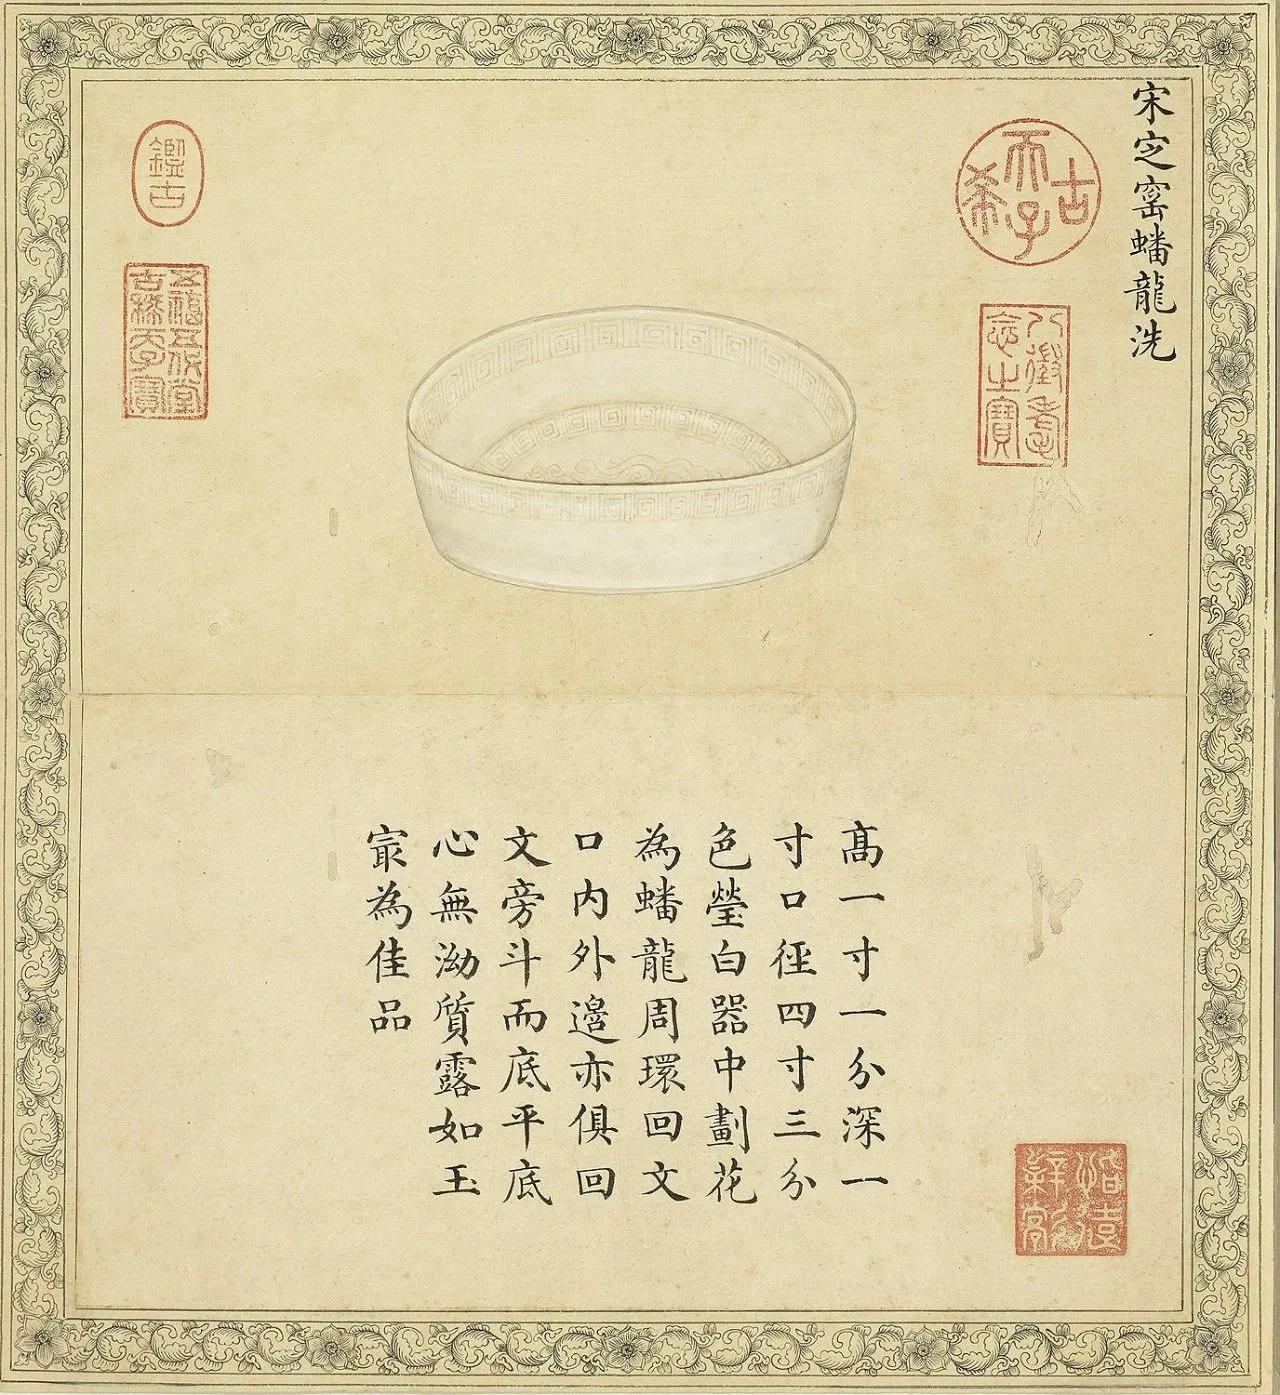 宋㝎窰蟠龍洗
古希天子
八徵耄
念之寶
鑑古
五福五代堂
古稀天子寶
髙一寸一分深一
寸口徑四寸三分
色瑩白器中劃花
為蟠龍周環回文
口內外邊亦俱回
文旁斗而底平底
心無泑質露如玉
㝡為佳品